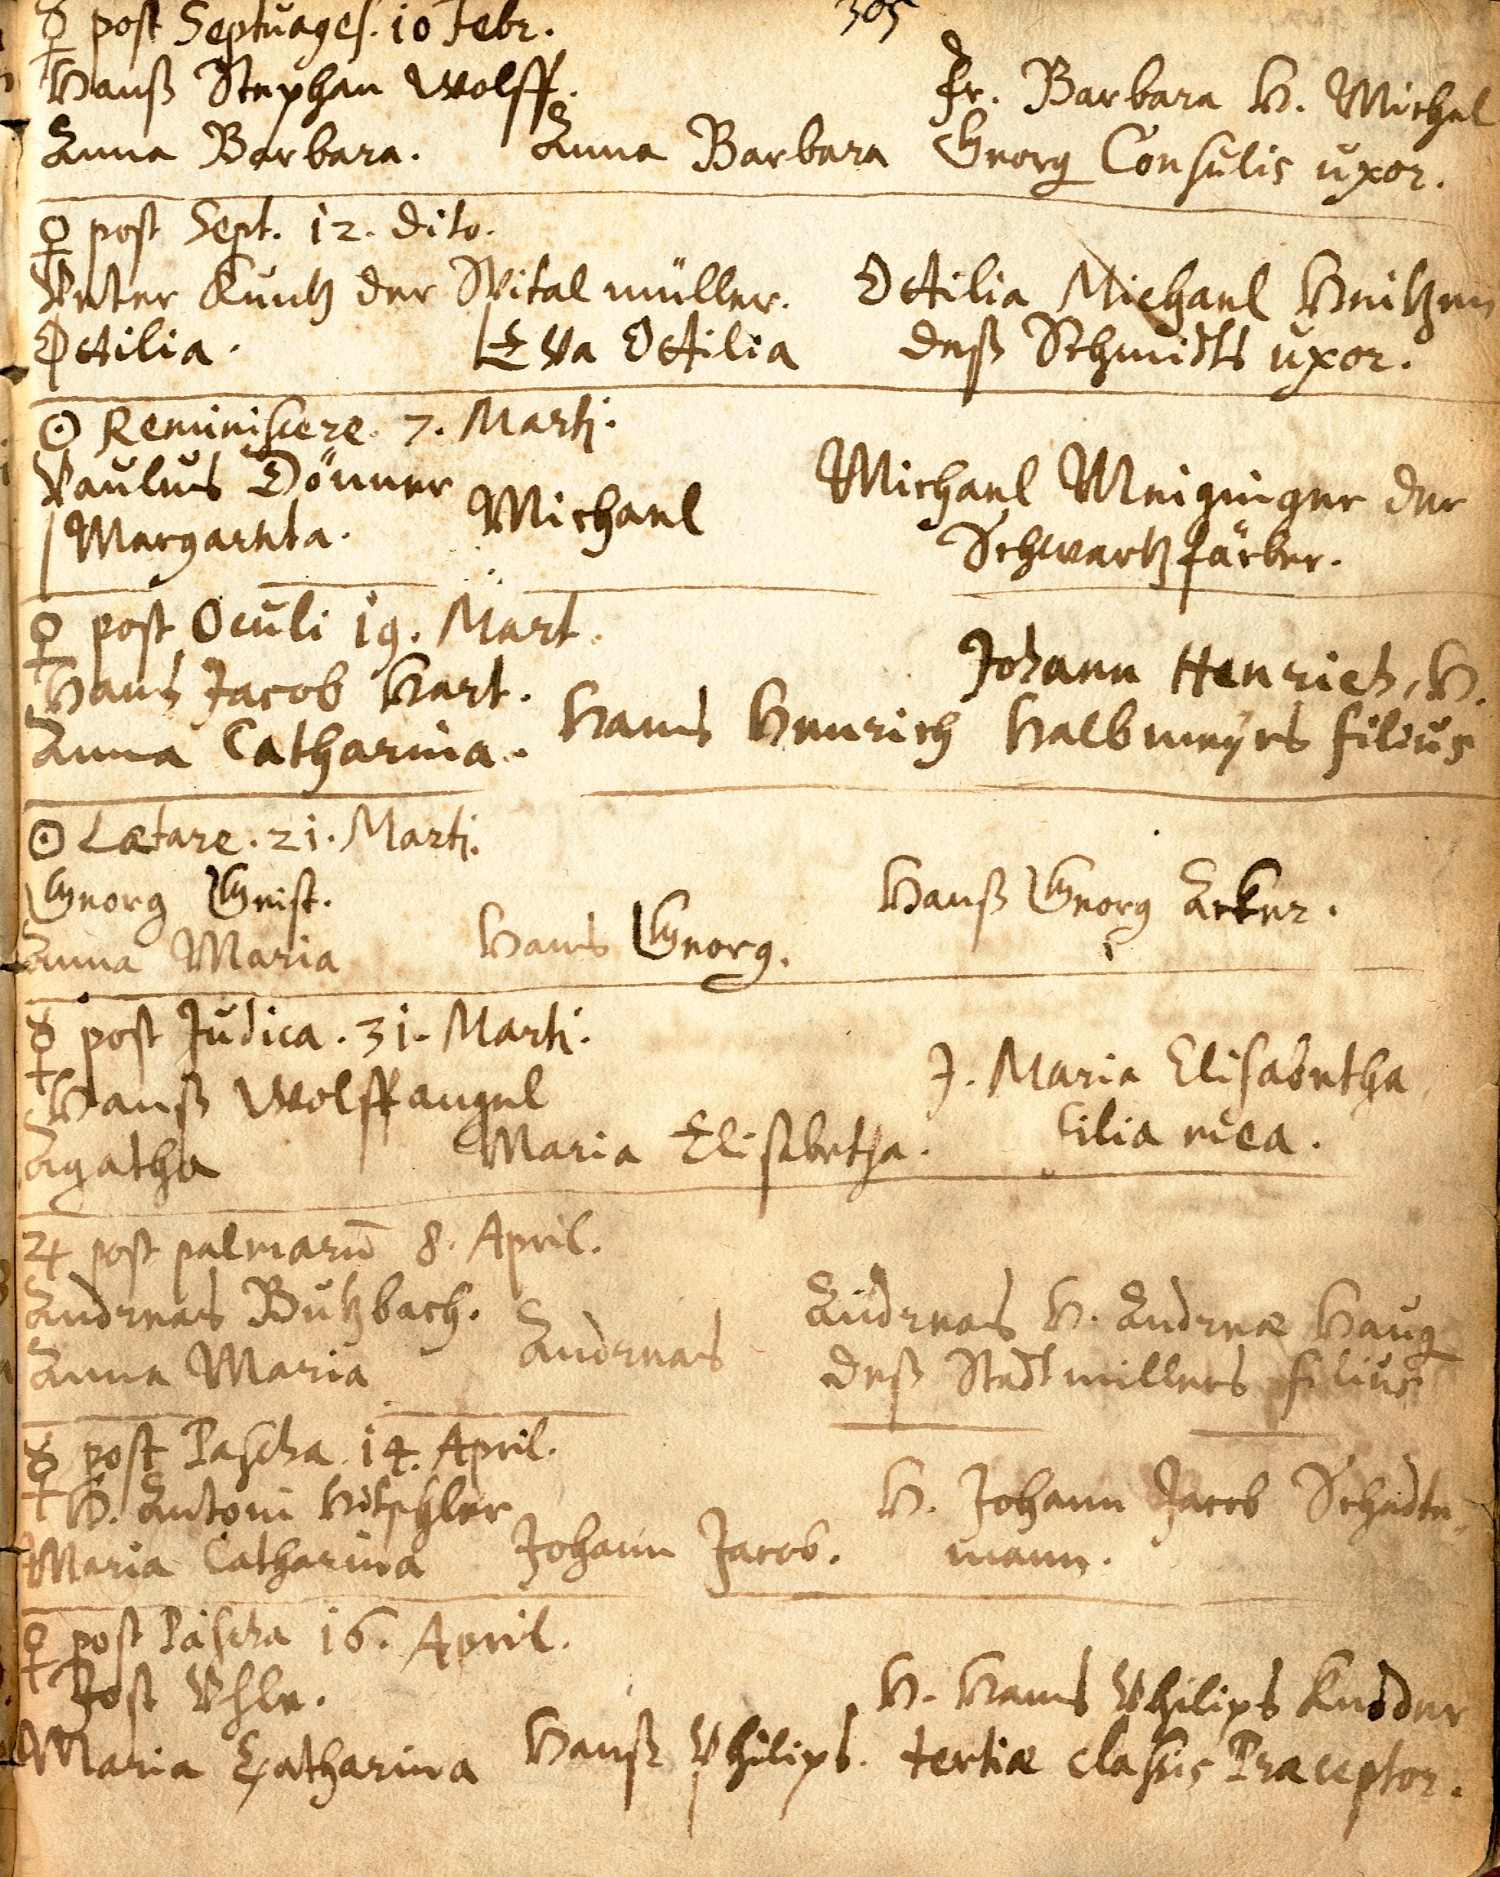 305
☿ post Septuages. 10 Febr.
Hanß Stephan Wolff.
Anna Barbara.
Anna Barbara
Fr. Barbara H. Michel
Georg Consulis uxor.
♀ post Sept. 12. dito.
Peter Kuntz der Spitalmüller.
Ottilia.
Eva Ottilia
Ottilia Michael
deß Schmidts uxor.
☉ Reminiscere. 7. Martij.
Paulus Dönner
Margareta.
Michael
Michael Meiginger der
Schwartzfärber.
♀ post Oculi 19. Mart.
Hans Jacob Hart.
Anna Catharina.
Hans Henrich
Johann Henrich, H.
Halbmeyrs filius
☉ Lætare. 21. Martij.
Georg Geist.
Anna Maria
Hans Georg.
Hanß Georg Acker.
☿ post Judica. 31. Martij.
Hanß Wolffangel
Agatha
Maria Elisabetha.
J. Maria Elisabetha
filia mea.
♃ post palmarū 8. April.
Andreas Butzbach.
Anna Maria
Andreas
Andreas H. Andreæ Haug
deß Stadtmillers filius
☿ post Pascha. 14. April.
H. Antoni
Maria Catharina
Johann Jacob.
H. Johann Jacob Schadte-
mann.
♀ post Pascha 16. April.
Jost Uhle.
Maria Catharina
Hanß Philips.
H. Hans Philips
tertiæ classis Præceptor.